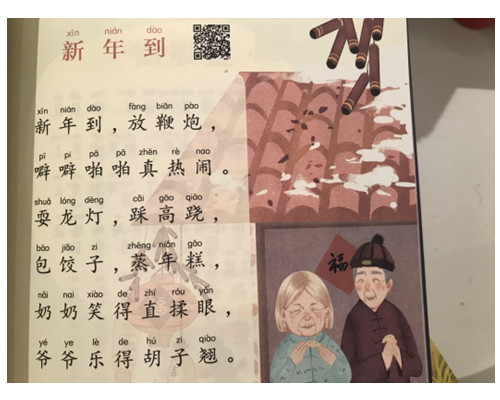 xīn nián dào
新年到
xīn nián dào fàng biān pào
新年到，放鞭炮，
pī pi pā pā zhēn rè nao
噼噼啪啪真热闹。
shuǎ lóng dēng cǎi gāo qiāo
耍龙灯，踩高跷，
bāo jiǎo zi zhēng nián gāo
包饺子，蒸年糕，
nǎi nai xiào de zhí róu yǎn
奶奶笑得直揉眼，
yé ye lè de hú zi qiào
爷爷乐得胡子翘。
福